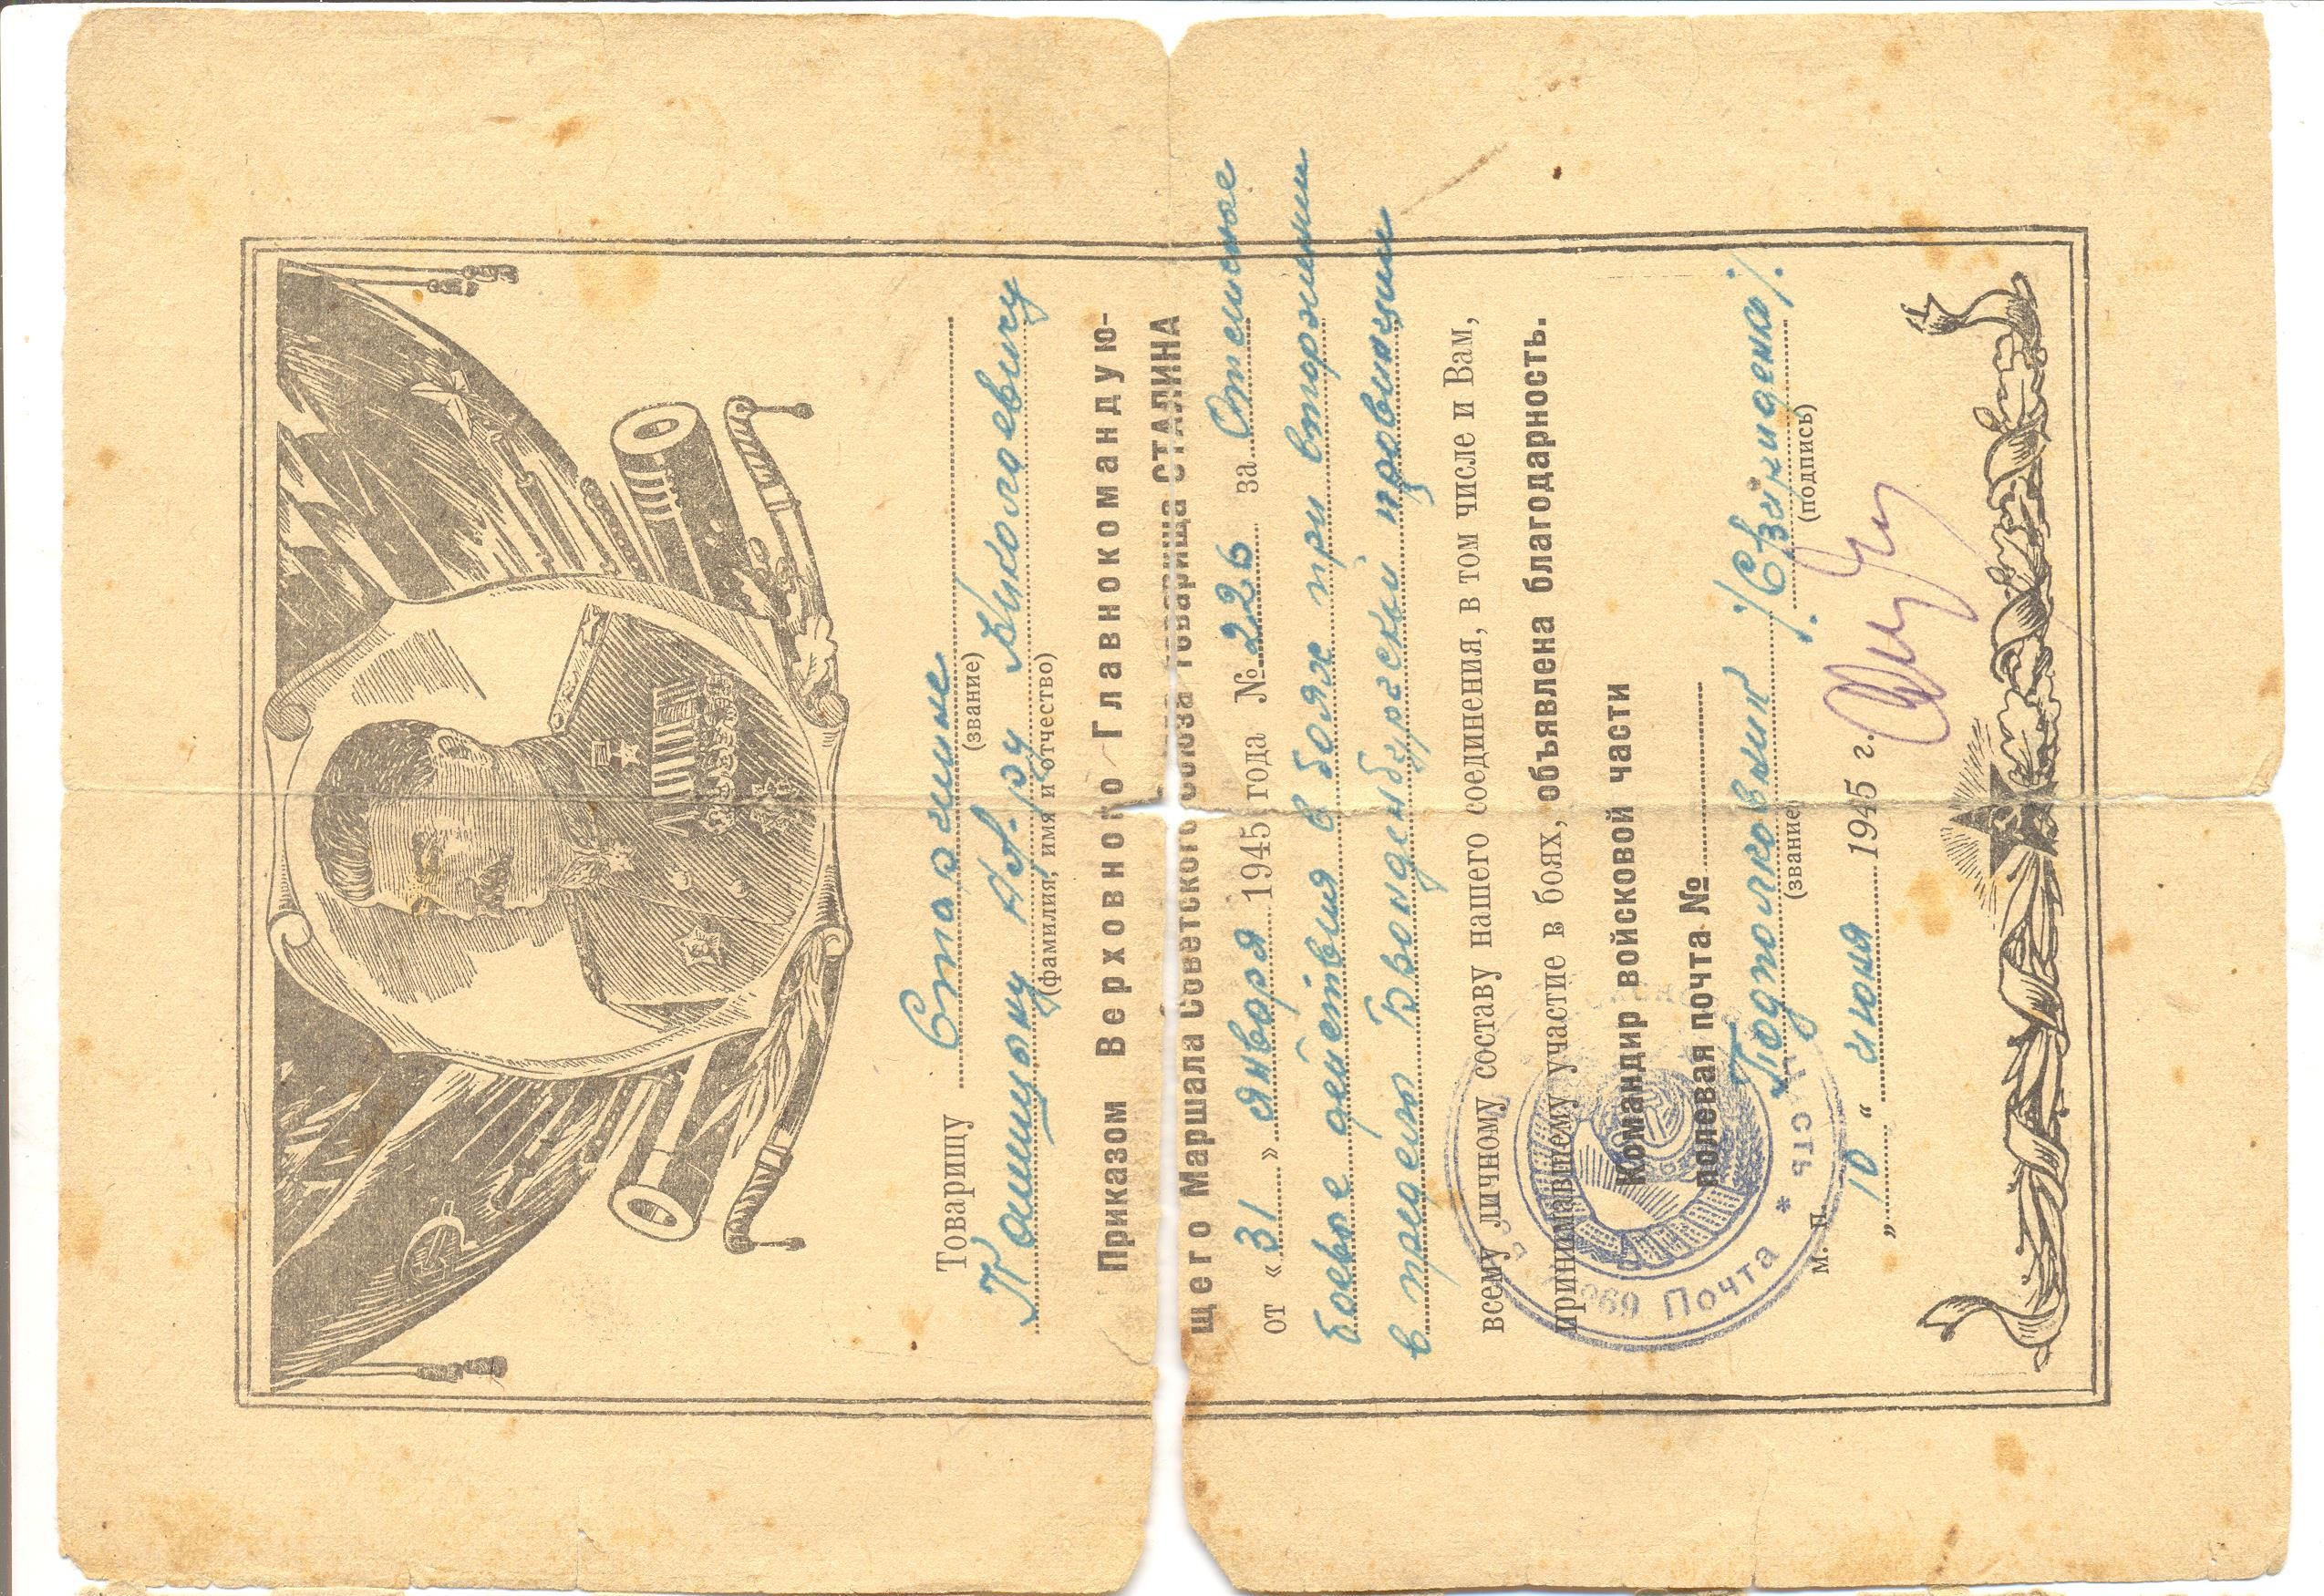 Товарищу Старшине
(звание)
Николаевичу
(фамилия, имя и отчество)
Приказом Верховного Главнокомандую-
щего Маршала Советского Союза товарища СТАЛИНА
от «31» января 1945 года № 226 за Отличные
боевые действия в боях при вторжении
в пределы Бранденбургской провинции
всему личному составу нашего соединения, в том числе и Вам,
принимавшему участие в боях, объявлена благодарность.
Командир войсковой части
полевая почта №
Подполковник
(звание) (подпись)
М. П.
„10“ июня 1945 г.
Почта